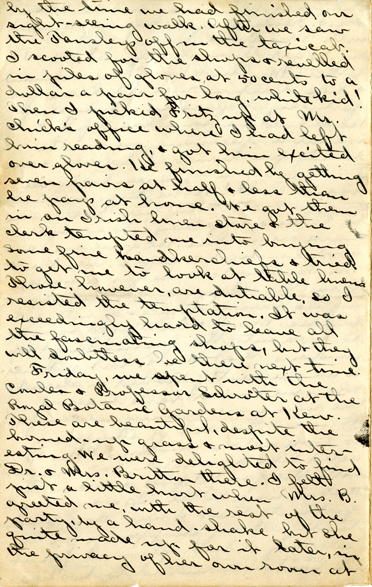 by the time we had finished our
sight-seeing walk. After we saw
the Tansleys off in the taxicab.
I scooted for the shops & revelled
in piles of gloves at 50 cents to a
dollar a pair for long white kid!
Then I picked Fritz up at Mr.
office where I had left
him reading, & got him excited
over gloves. He finished by getting
seven pairs at half & less than
he pays at home. We got them
in an Irish linen store & the
clerk tempted me into buying
some fine handkerchiefs & tried
to get me to look at table linens
Those, however, are dutiable, so I
resisted the temptation. It was
exceedingly hard to leave all
the fascinating shops, but they
will doubtless be there next time.
Friday we spent with the
Cowles & Professor Schröter at the
Royal Botanic Gardens at Kew.
These are beautiful, despite the
burned-up grass & most inter-
esting. We were delighted to find
Dr. & Mrs. Britton there. I felt
just a little hurt when Mrs. B.
greeted me, with the rest of the
party, by a hand-shake, but she
quite made up for it later, in
the privacy of her own room at